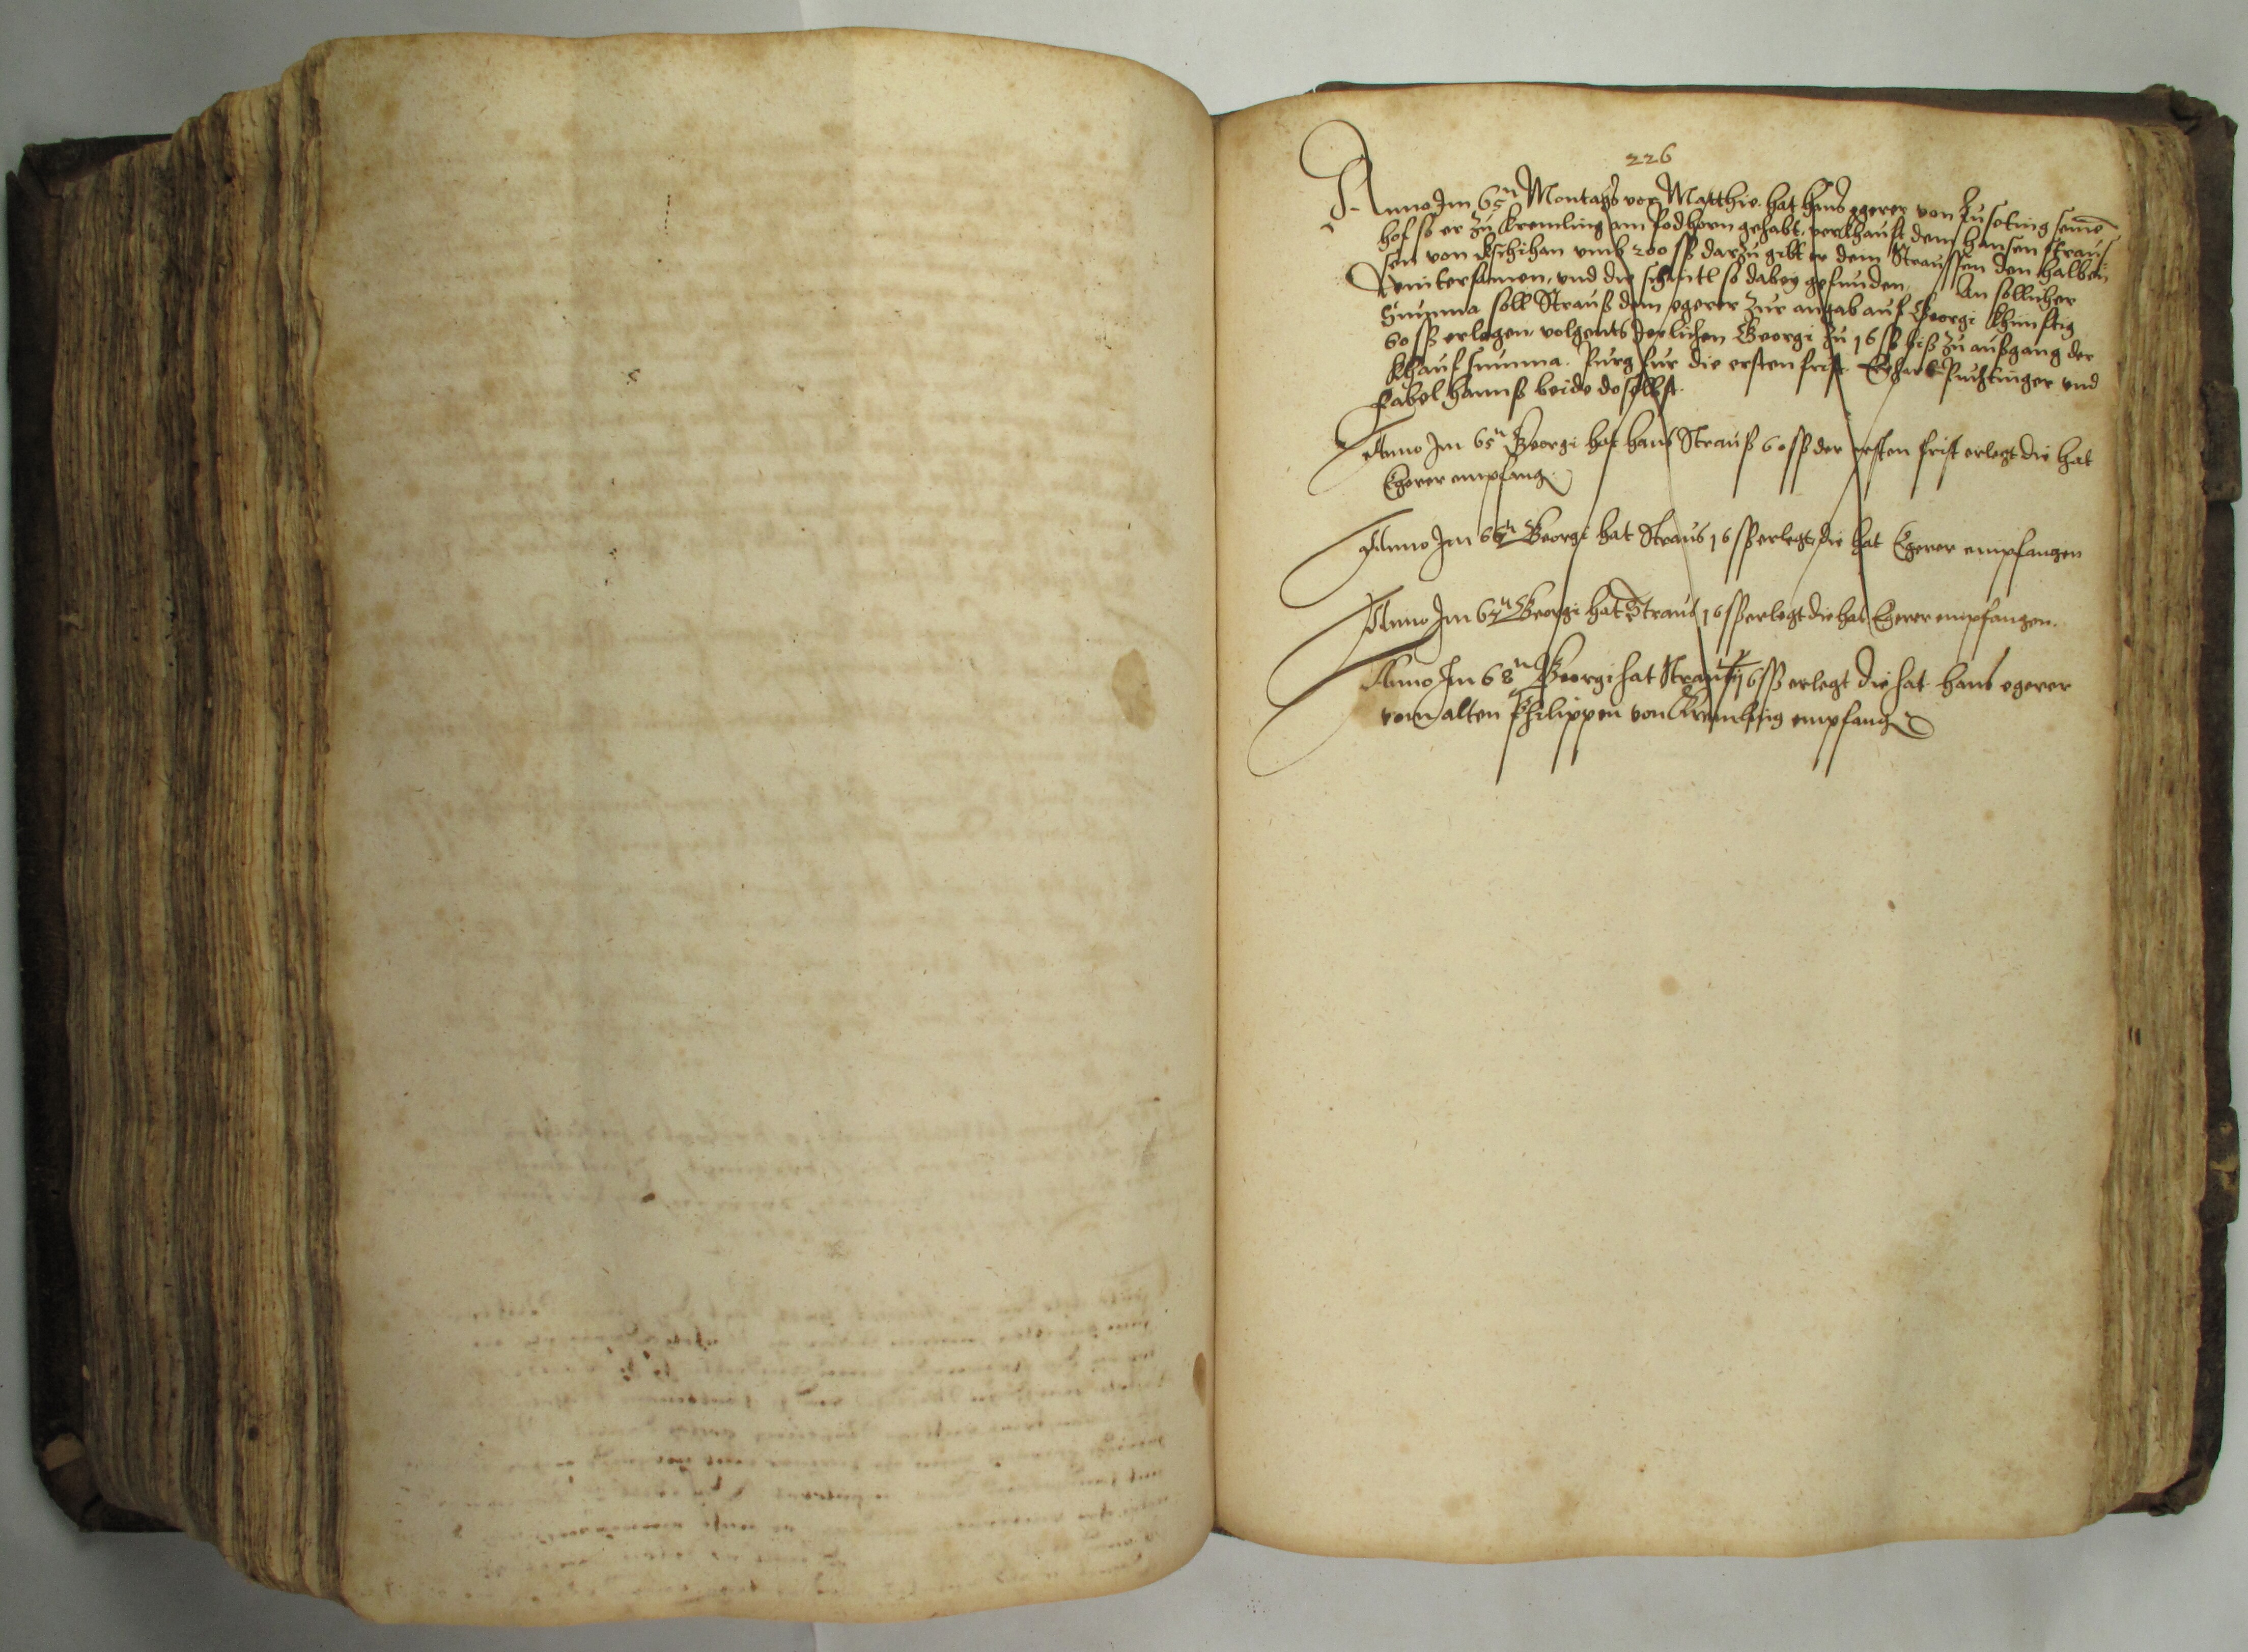 226
Anno Im 65n Montags vor Matthie hat hans egerer von seine
hof so er zu Kremling am podhorn gehabt, verkhauft dem hansen Straus
sen von umb 200 ſß darzu gibt er dem Straussen den halben
Wintersamen, und die so dabey gefunden, An sollicher
Summa soll Strauß dem egerer zur angab auf Georgi khunftig
60 ſß erlegen volgents Jerlichen Georgi zu 16 ſß biß zu außgang der
Khaufsumma. Purg fur die ersten frist und
hannß beide doselbst.
Anno Im 65n Georgi hat hans Strauß 60 ſß der ersten frist erlegt die hat
Egerer empfang.
Anno Im 66n Georgi hat Straus 16 ſß erlegt, die hat Egerer empfangen
Anno Im 67n Georgi hat Straus 16 ſß erlegt die hat Egerer empfangen.
Anno Im 68n Georgi hat Strauß 16 ſß erlegt die hat hans egerer
vom alten Philippen von Kremling empfang